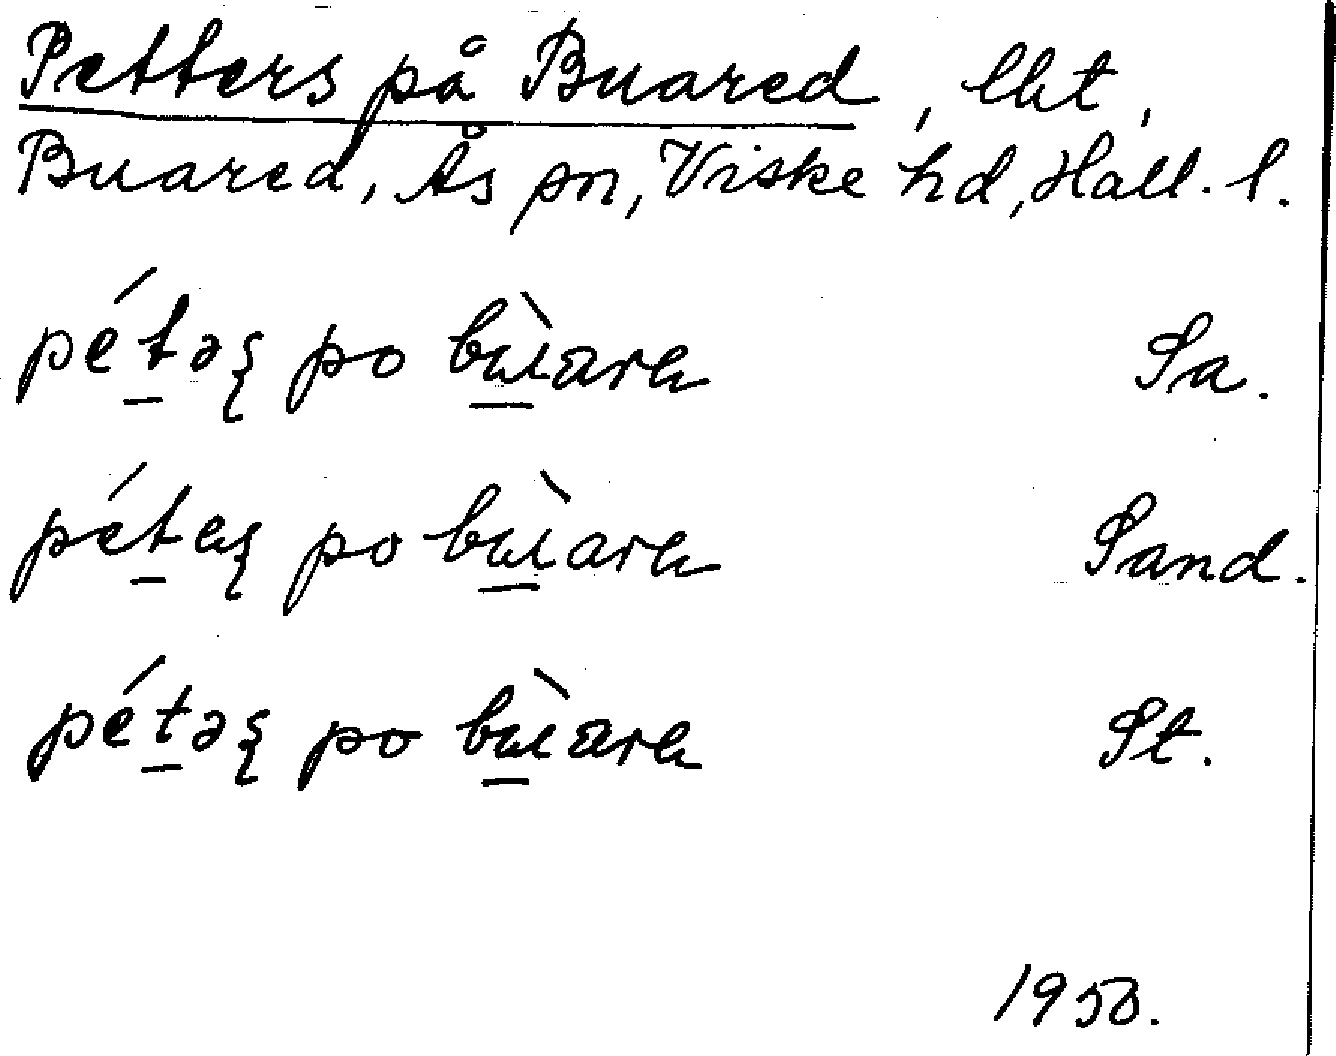 Petters på Buared, lht,
Buared, Ås sn, Viske hd, Hall. l.
pétəʂ po bùara Sa.
pétaʂ po bùara Sand.
pétəʂ po bùara St.
1950.